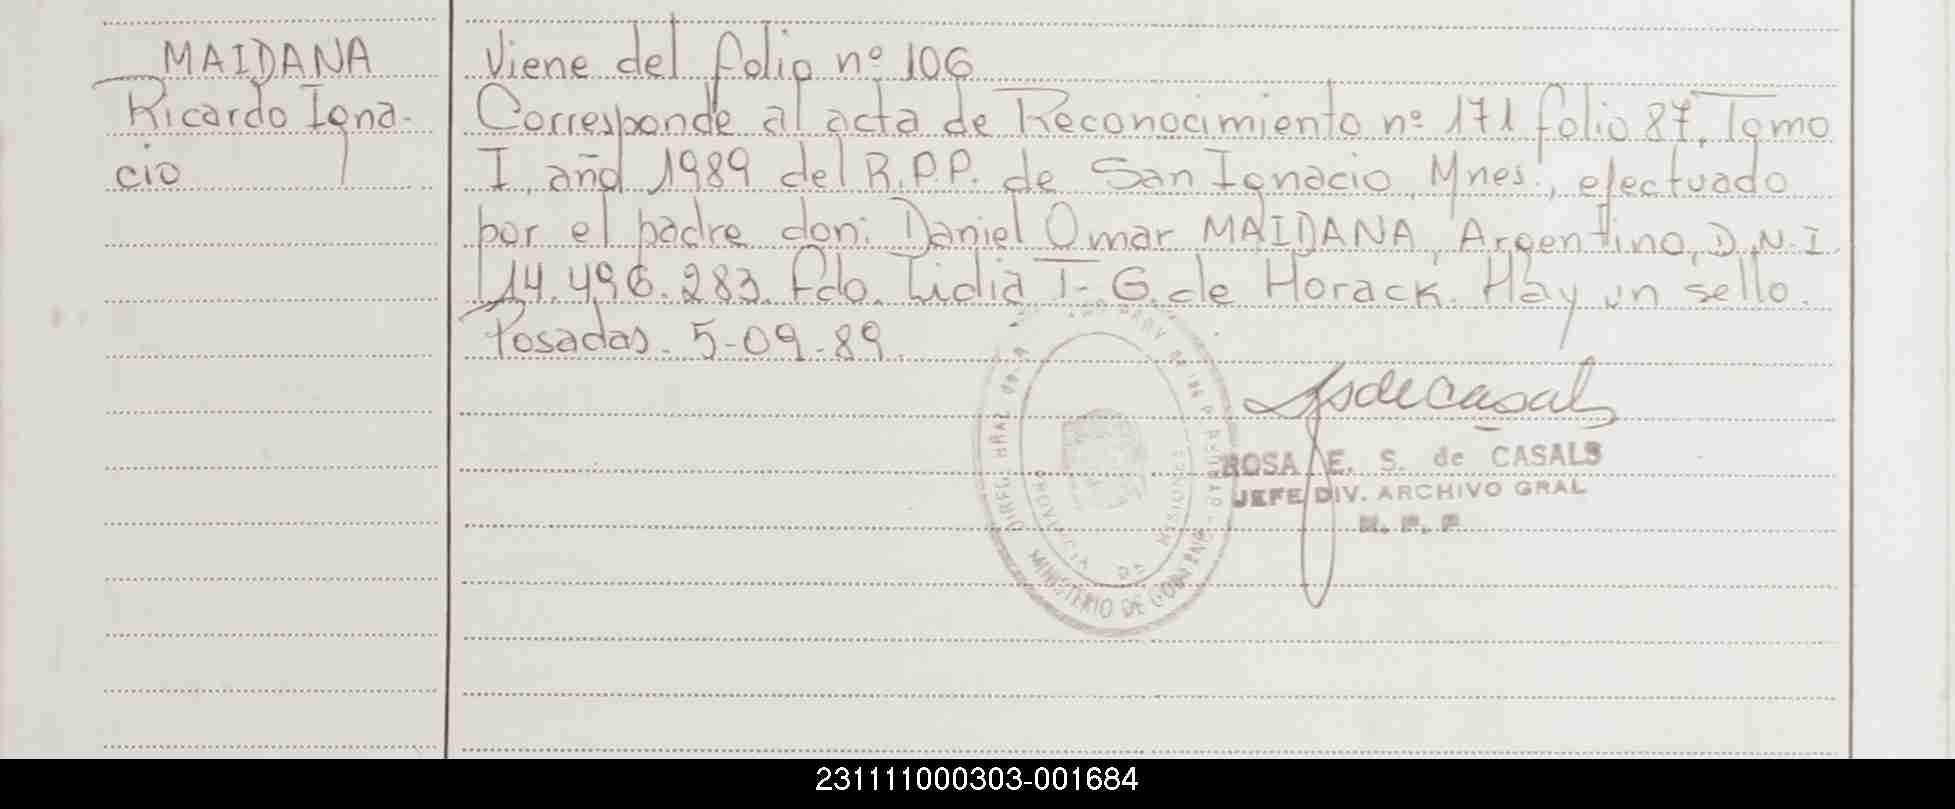 MAIDANA
Ricardo Igna-
cio
Viene del folio nº 106
Corresponde al acta de Reconocimiento nº 171 folio 87, Tomo
I, año 1989 del R.P.P. de San Ignacio, Mnes., efectuado
por el padre don: Daniel Omar MAIDANA, Argentino, D.N.I.
14.496.283. Fdo. Lidia T. G. de Horack. Hay un sello.
Posadas. 5-09-89.
ROSA E. S. de CASALS
JEFE DIV. ARCHIVO GRAL
R. P. P
MINISTERIO DE GOBIERNO
PROVINCIA DE MISIONES
231111000303-001684